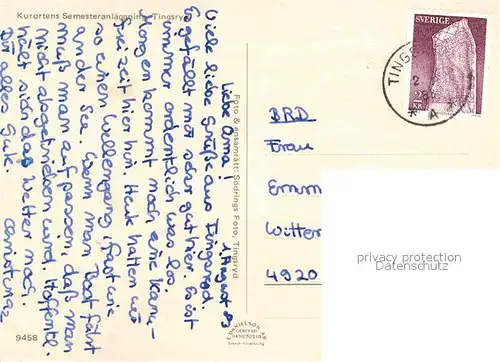 Kurortens Semesteranläggning, Tingsryd
1. August 83
Liebe Oma!
Viele liebe Grüße aus Tingsryd.
Es gefällt mir sehr gut hier. Es ist
immer ordentlich was los.
Morgen kommt noch eine Kanu-
freizeit hier hin. Heute hatten wir
so einen Wellengang, fast wie
an der See. Wenn man Boot fährt
muß man aufpassen, daß man
nicht abgetrieben wird. Hoffentl.
hält sich das Wetter noch.
Dir alles Gute.
Christina
9458
Foto & ensamrätt: Södrings Foto, Tingsryd
DANIELSON
SVERIGE
TINGS
BRD
Frau
Emm
Witter
4920
privacy protection
Datenschutz